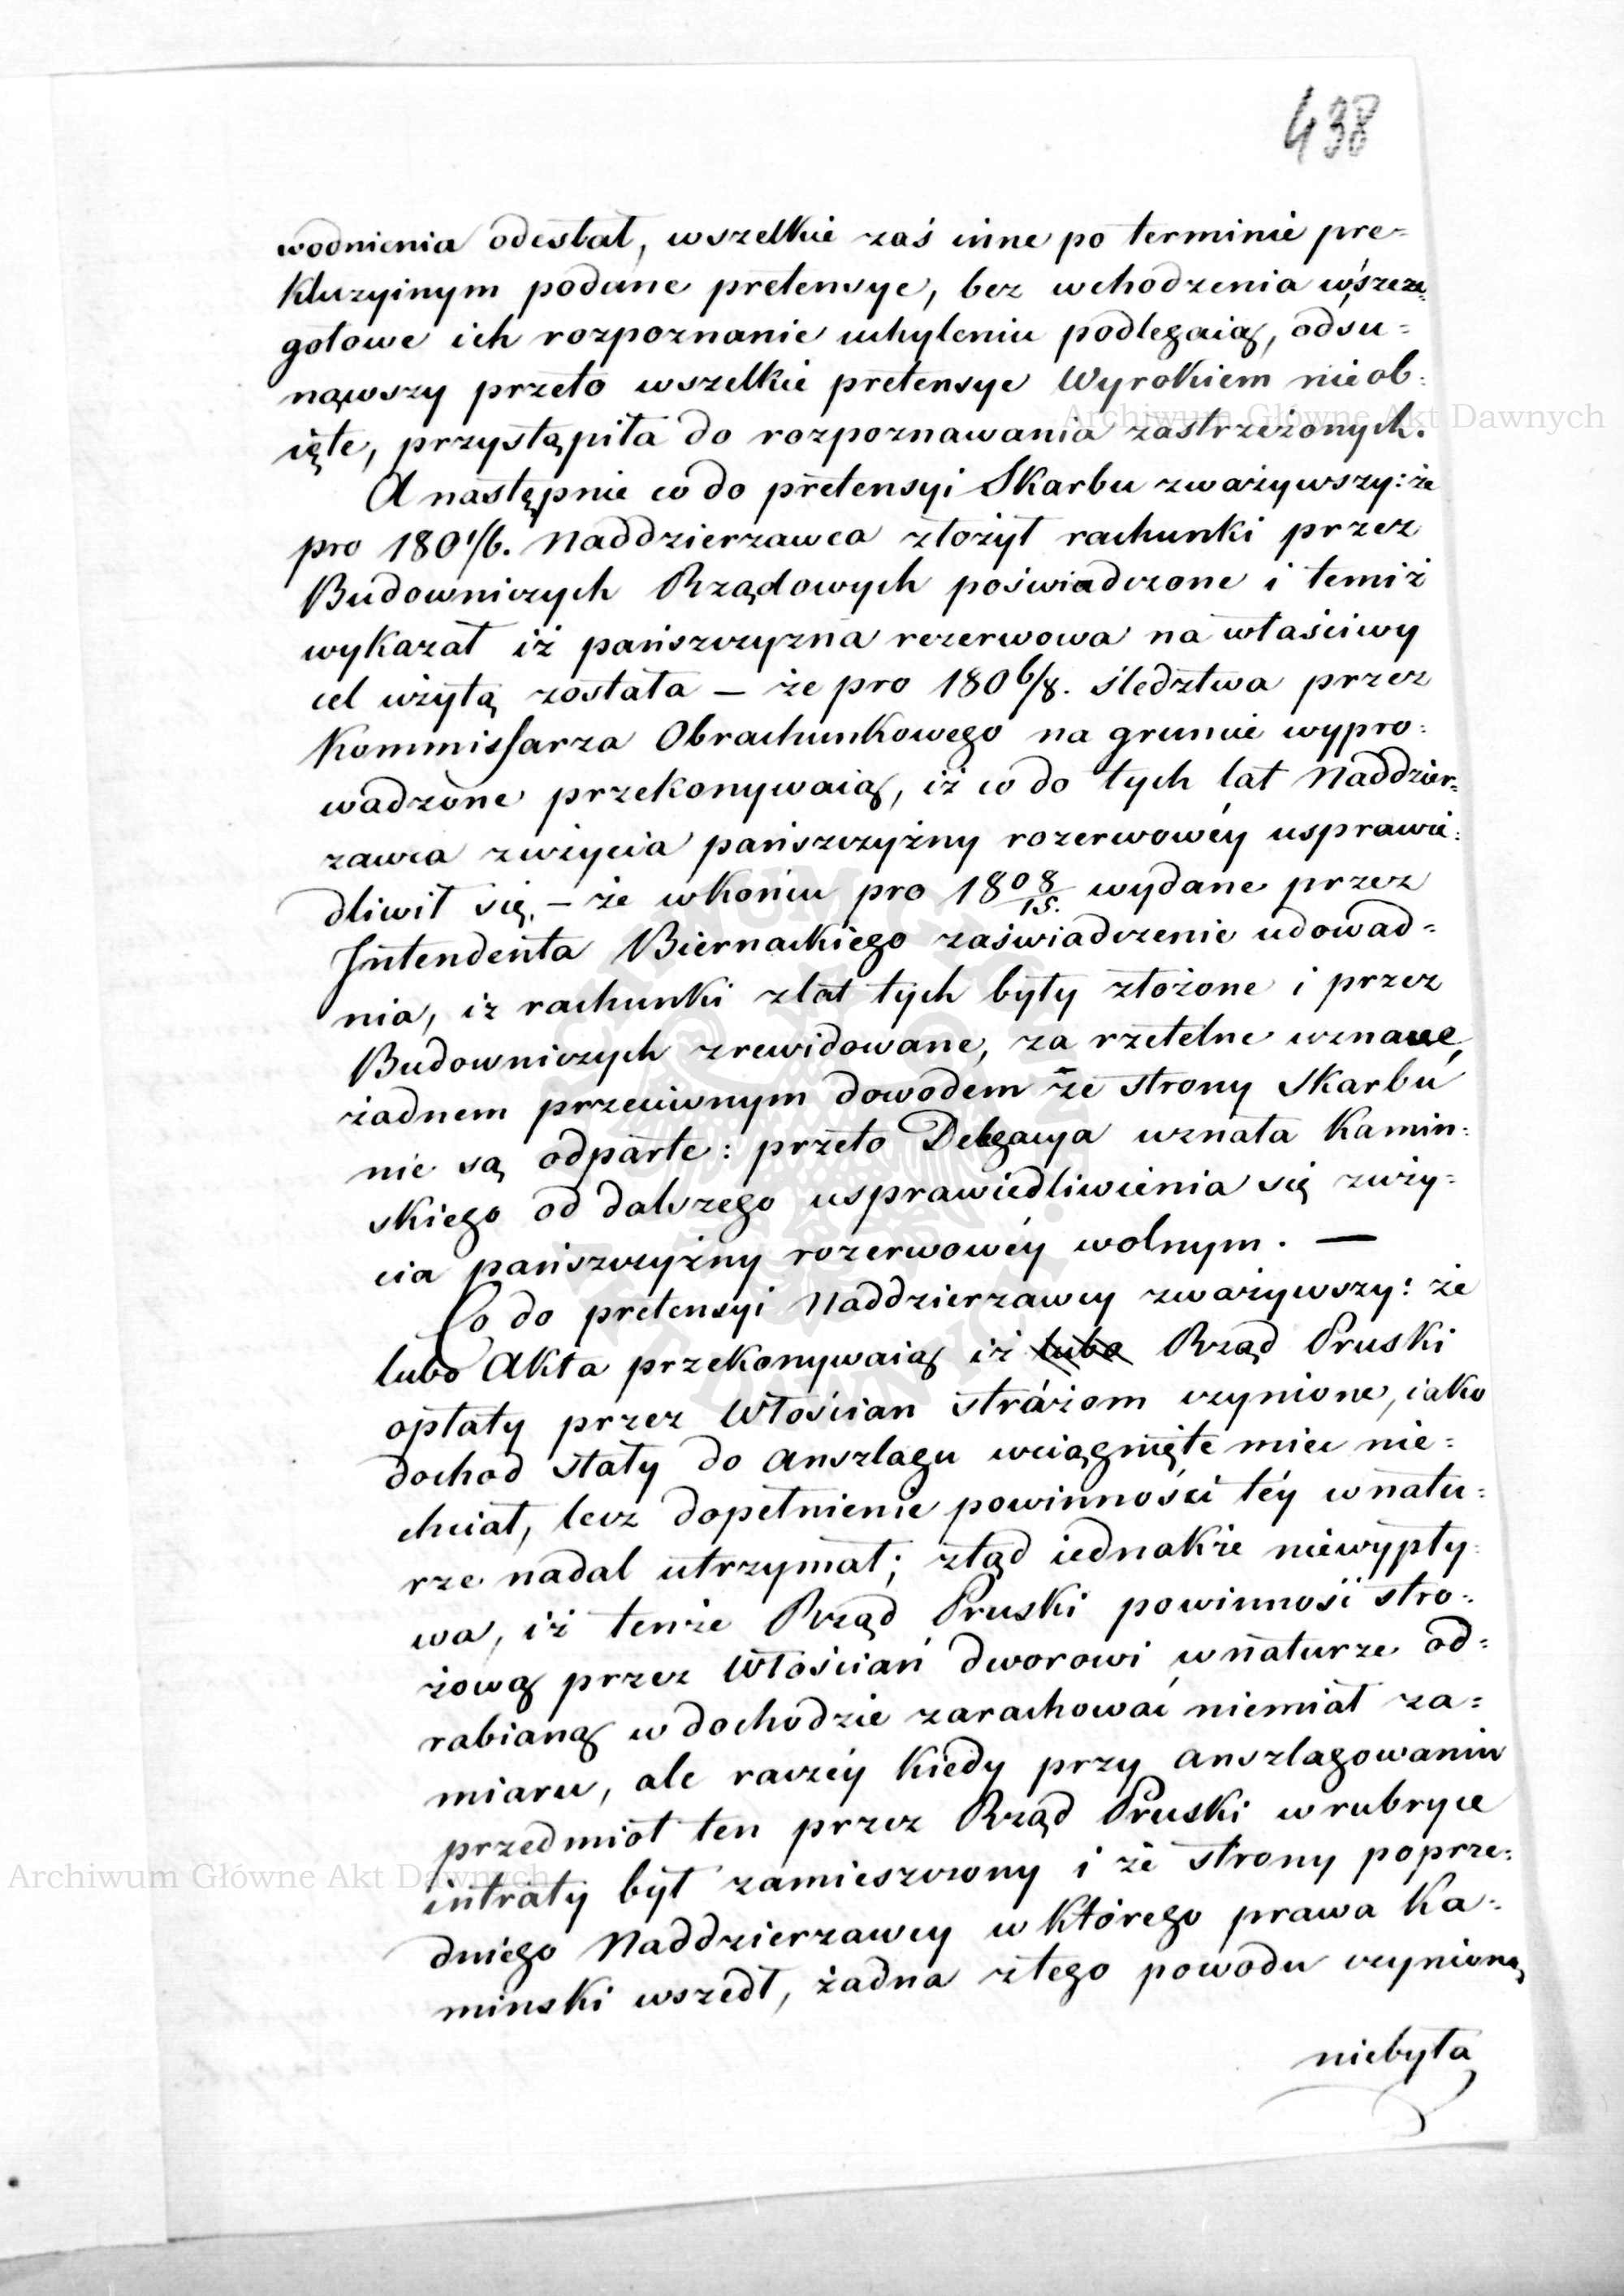 438
wodnienia odesłał, wszelkie zaś inne po terminie pre=
kluzyinym podane pretensye, bez wchodzenia w szcze=
gołowe ich rozpoznanie uchyleniu podlegaią, odsu=
nąwszy przeto wszelkie pretensye Wyrokiem nieob=
ięte, przystąpiła do rozpoznawania zastrzeżonych.
A następnie co do pretensyi Skarbu zważywszy: że
pro 180 1/6. Naddzierzawca złożył rachunki przez
Budowniczych Rządowych poświadczone i temiż
wykazał iż pańszczyzna rezerwowa na właściwy
cel użytą została – że pro 180 6/8. śledztwa przez
Kommissarza Obrachunkowego na gruncie wypro=
wadzone przekonywaią, iż co do tych lat Naddzier=
zawca z użycia pańszczyzny rozerwowéy usprawie=
dliwił się, – że w końcu pro 18 08/15. wydane przez
Intendenta Biernackiego zaświadczenie udowad=
nia, iz rachunki z lat tych były złożone i przez
Budowniczych zrewidowane, za rzetelne uznane,
żadnem przeciwnym dowodem ze strony Skarbu
nie są odparte: przeto Delegacya uznała Kamin=
skiego od dalszego usprawiedliwienia się z uży=
cia pańszczyzny rozerwowéy wolnym. —
Co do pretensyi Naddzierzawcy zważywszy: że
lubo Akta przekonywaią iż lubo Rząd Pruski
opłaty przez Włościan stróżom czynione, iako
dochod stały do anszlagu wciągnięte miec nie=
chciał, lecz dopełnienie powinności téy w natu=
rze nadal utrzymał; ztąd iednakże niewypły=
wa, iż tenże Rząd Pruski powinność stro=
żową przez Włościań dworowi w naturze od=
rabianą w dochodzie zarachować niemiał za=
miaru, ale raczéy kiedy przy anszlagowaniu
przedmiot ten przez Rząd Pruski w rubryce
intraty był zamieszczony i ze strony poprze=
dniego Naddzierzawcy w którego prawa Ka=
minski wszedł, żadna z tego powodu czynioną
niebyła
Archiwum Główne Akt Dawnych
Archiwum Główne Akt Dawnych